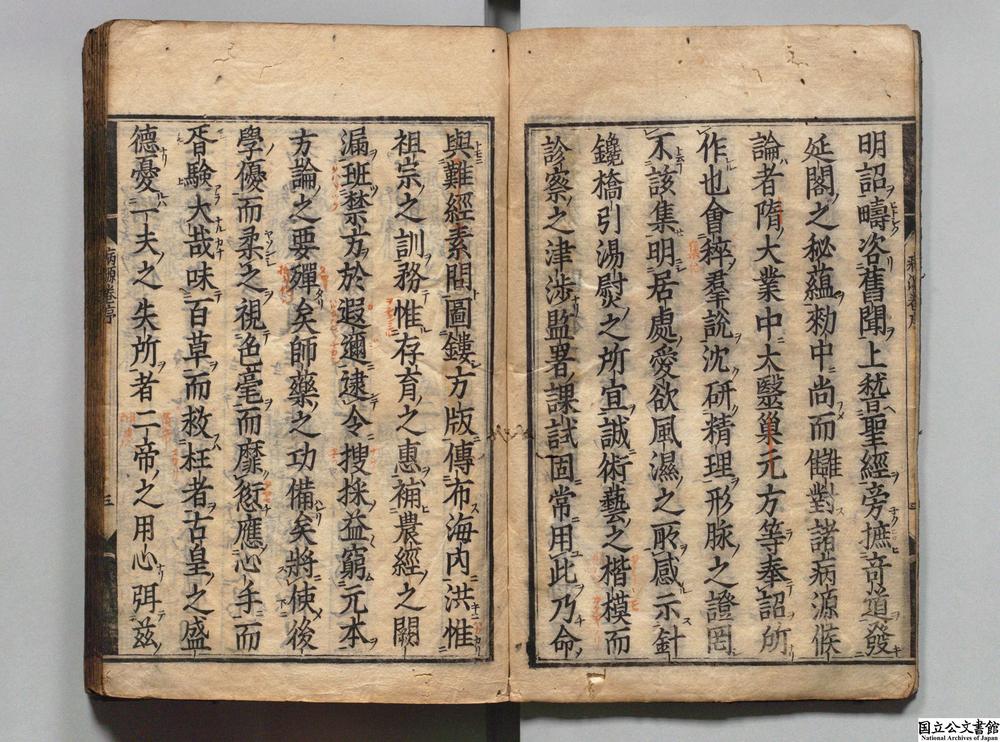 明詔疇咨舊聞上嵇聖經旁摭奇道發
延閣之秘蘊勑中尚而讎對諸病源候
論者隋大業中太醫巢元方等奉詔所
作也會稡羣說沈研精理形脉之證罔
不該集明居處愛欲風濕之所感示針
鑱橋引湯熨之所宜誠術藝之楷模而
診察之津涉監署課試固常用此乃命
與難經素問圖鏤方版傳布海內洪惟
祖宗之訓務惟存育之惠補農經之闕
漏班禁方於遐邇逮令搜採益窮元本
方論之要殫矣師藥之功備矣將使後
學優而柔之視色毫而靡愆應心手而
胥驗大哉味百草而救枉者古皇之盛
德憂一夫之失所者二帝之用心弭茲
三
国立公文書館
National Archives of Japan